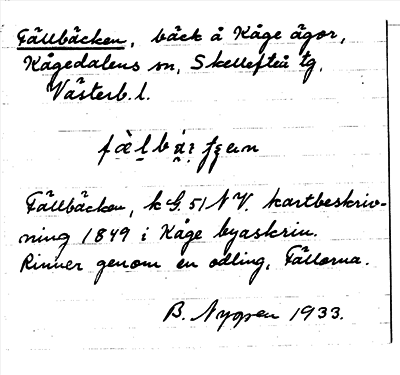 Fällbäcken, bäck å Kåge ägor,
Kågedalens sn, Skellefteå tg,
Västerb. l.
Fällbäcken, k G. 51 NV. kartbeskriv-
ning 1849 i Kåge byaskrin.
Rinner genom en odling, Fällorna.
B. Nygren 1933.